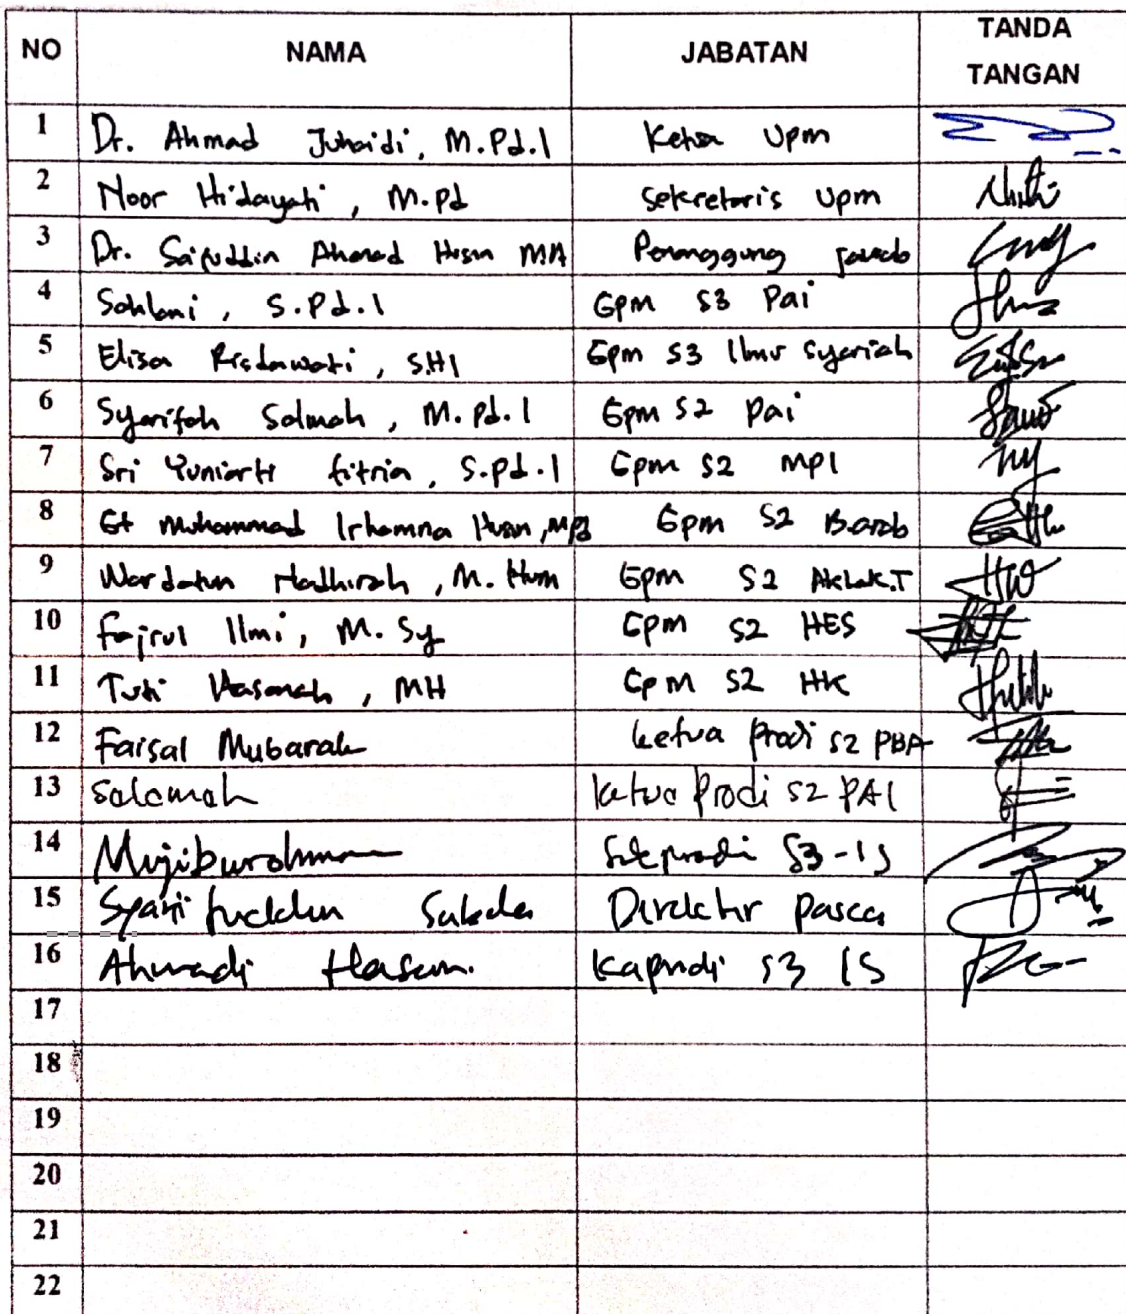 NO NAMA JABATAN TANDA TANGAN
1 Dr. Ahmad Juhaidi, M.Pd.I Ketua Upm
2 Noor Hidayati, M.Pd Sekretaris Upm
3 Dr. Saifuddin Ahmad Husin MA Penanggung jawab
4 Sahlani, S.Pd.I Gpm S3 Pai
5 Elisa Risdawati, SHI Gpm S3 Ilmu Syariah
6 Syarifah Salmah, M.Pd.I Gpm S2 Pai
7 Sri Yuniarti fitria, S.Pd.I Gpm S2 MPI
8 Gt Muhammad Irhamna Husin, MPd Gpm S2 B.arab
9 Wardatun Nadhirah, M. Hum Gpm S2 Akhlak.T
10 Fajrul Ilmi, M. Sy Gpm S2 HES
11 Tuti Hasanah, MH Gpm S2 HK
12 Faisal Mubarak Ketua Prodi S2 PBA
13 Salamah Ketua Prodi S2 PAI
14 Mujiburohman Sekprodi S3-IS
15 Syarifuddin Sabda Direktur pasca
16 Ahmadi Hasan. Kaprodi S3 IS
17
18
19
20
21
22